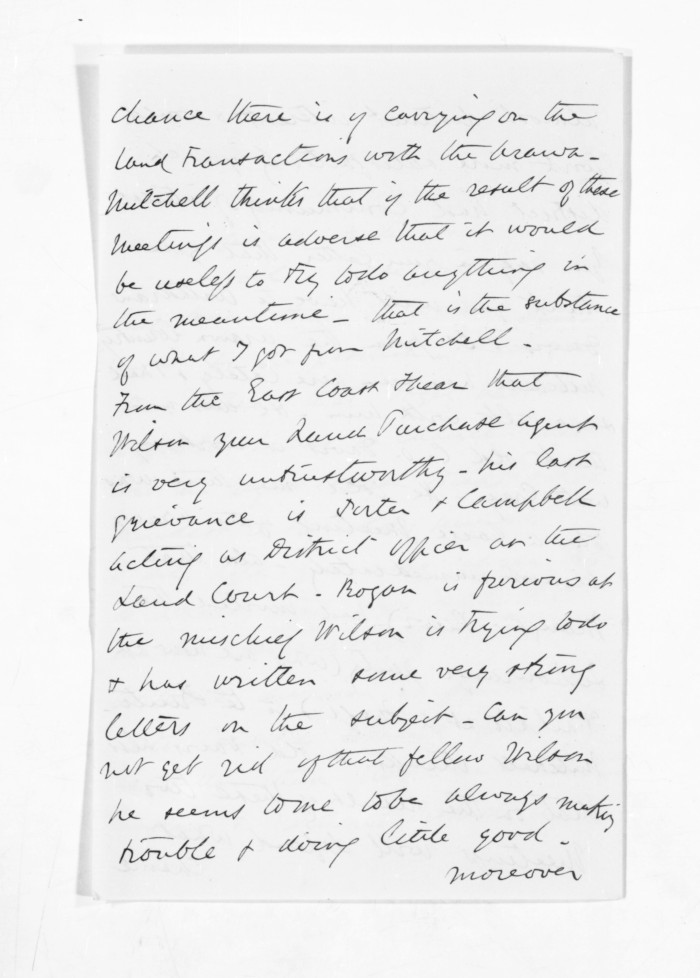 chance there is of carrying on the
land transactions with the Arawa -
Mitchell thinks that if the result of these
meetings is adverse that it would
be useless to try to do anything in
the meantime - that is the substance
of what I got from Mitchell -
From the East Coast I hear that
Wilson your Land Purchase Agent
is very untrustworthy - his last
grievance is Porter & Campbell
acting as District Officer on the
Land Court - Rogan is furious at
the mischief Wilson is trying to do
& has written some very strong
letters on the subject - Can you
not get rid of that fellow Wilson
he seems to me to be always making
trouble & doing little good -
moreover